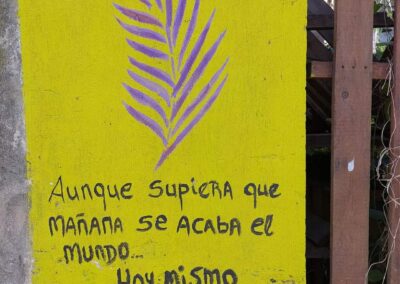 Aunque supiera que
mañana se acaba el
mundo...
Hoy mismo